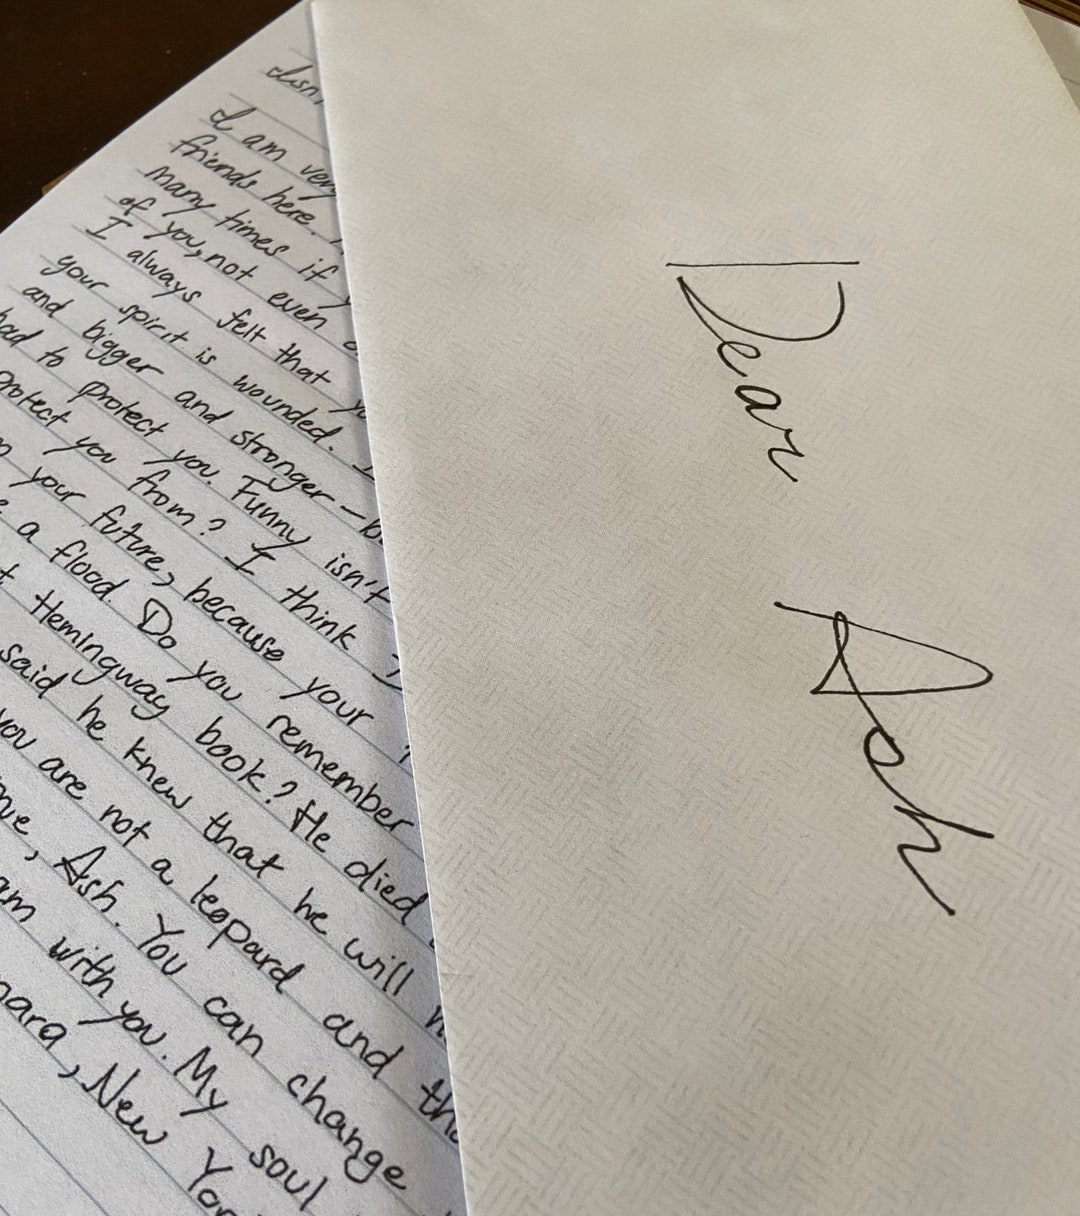 Ash,
I am very
friends here.
many times if
of you, not even
I always felt that
your spirit is wounded.
and bigger and stronger—
had to protect you. Funny isn't
protect you from? I think
your future, because your
a flood. Do you remember
Hemingway book? He died
said he knew that he will
you are not a leopard and
Ash. You can change
am with you. My soul
New
Dear Ash